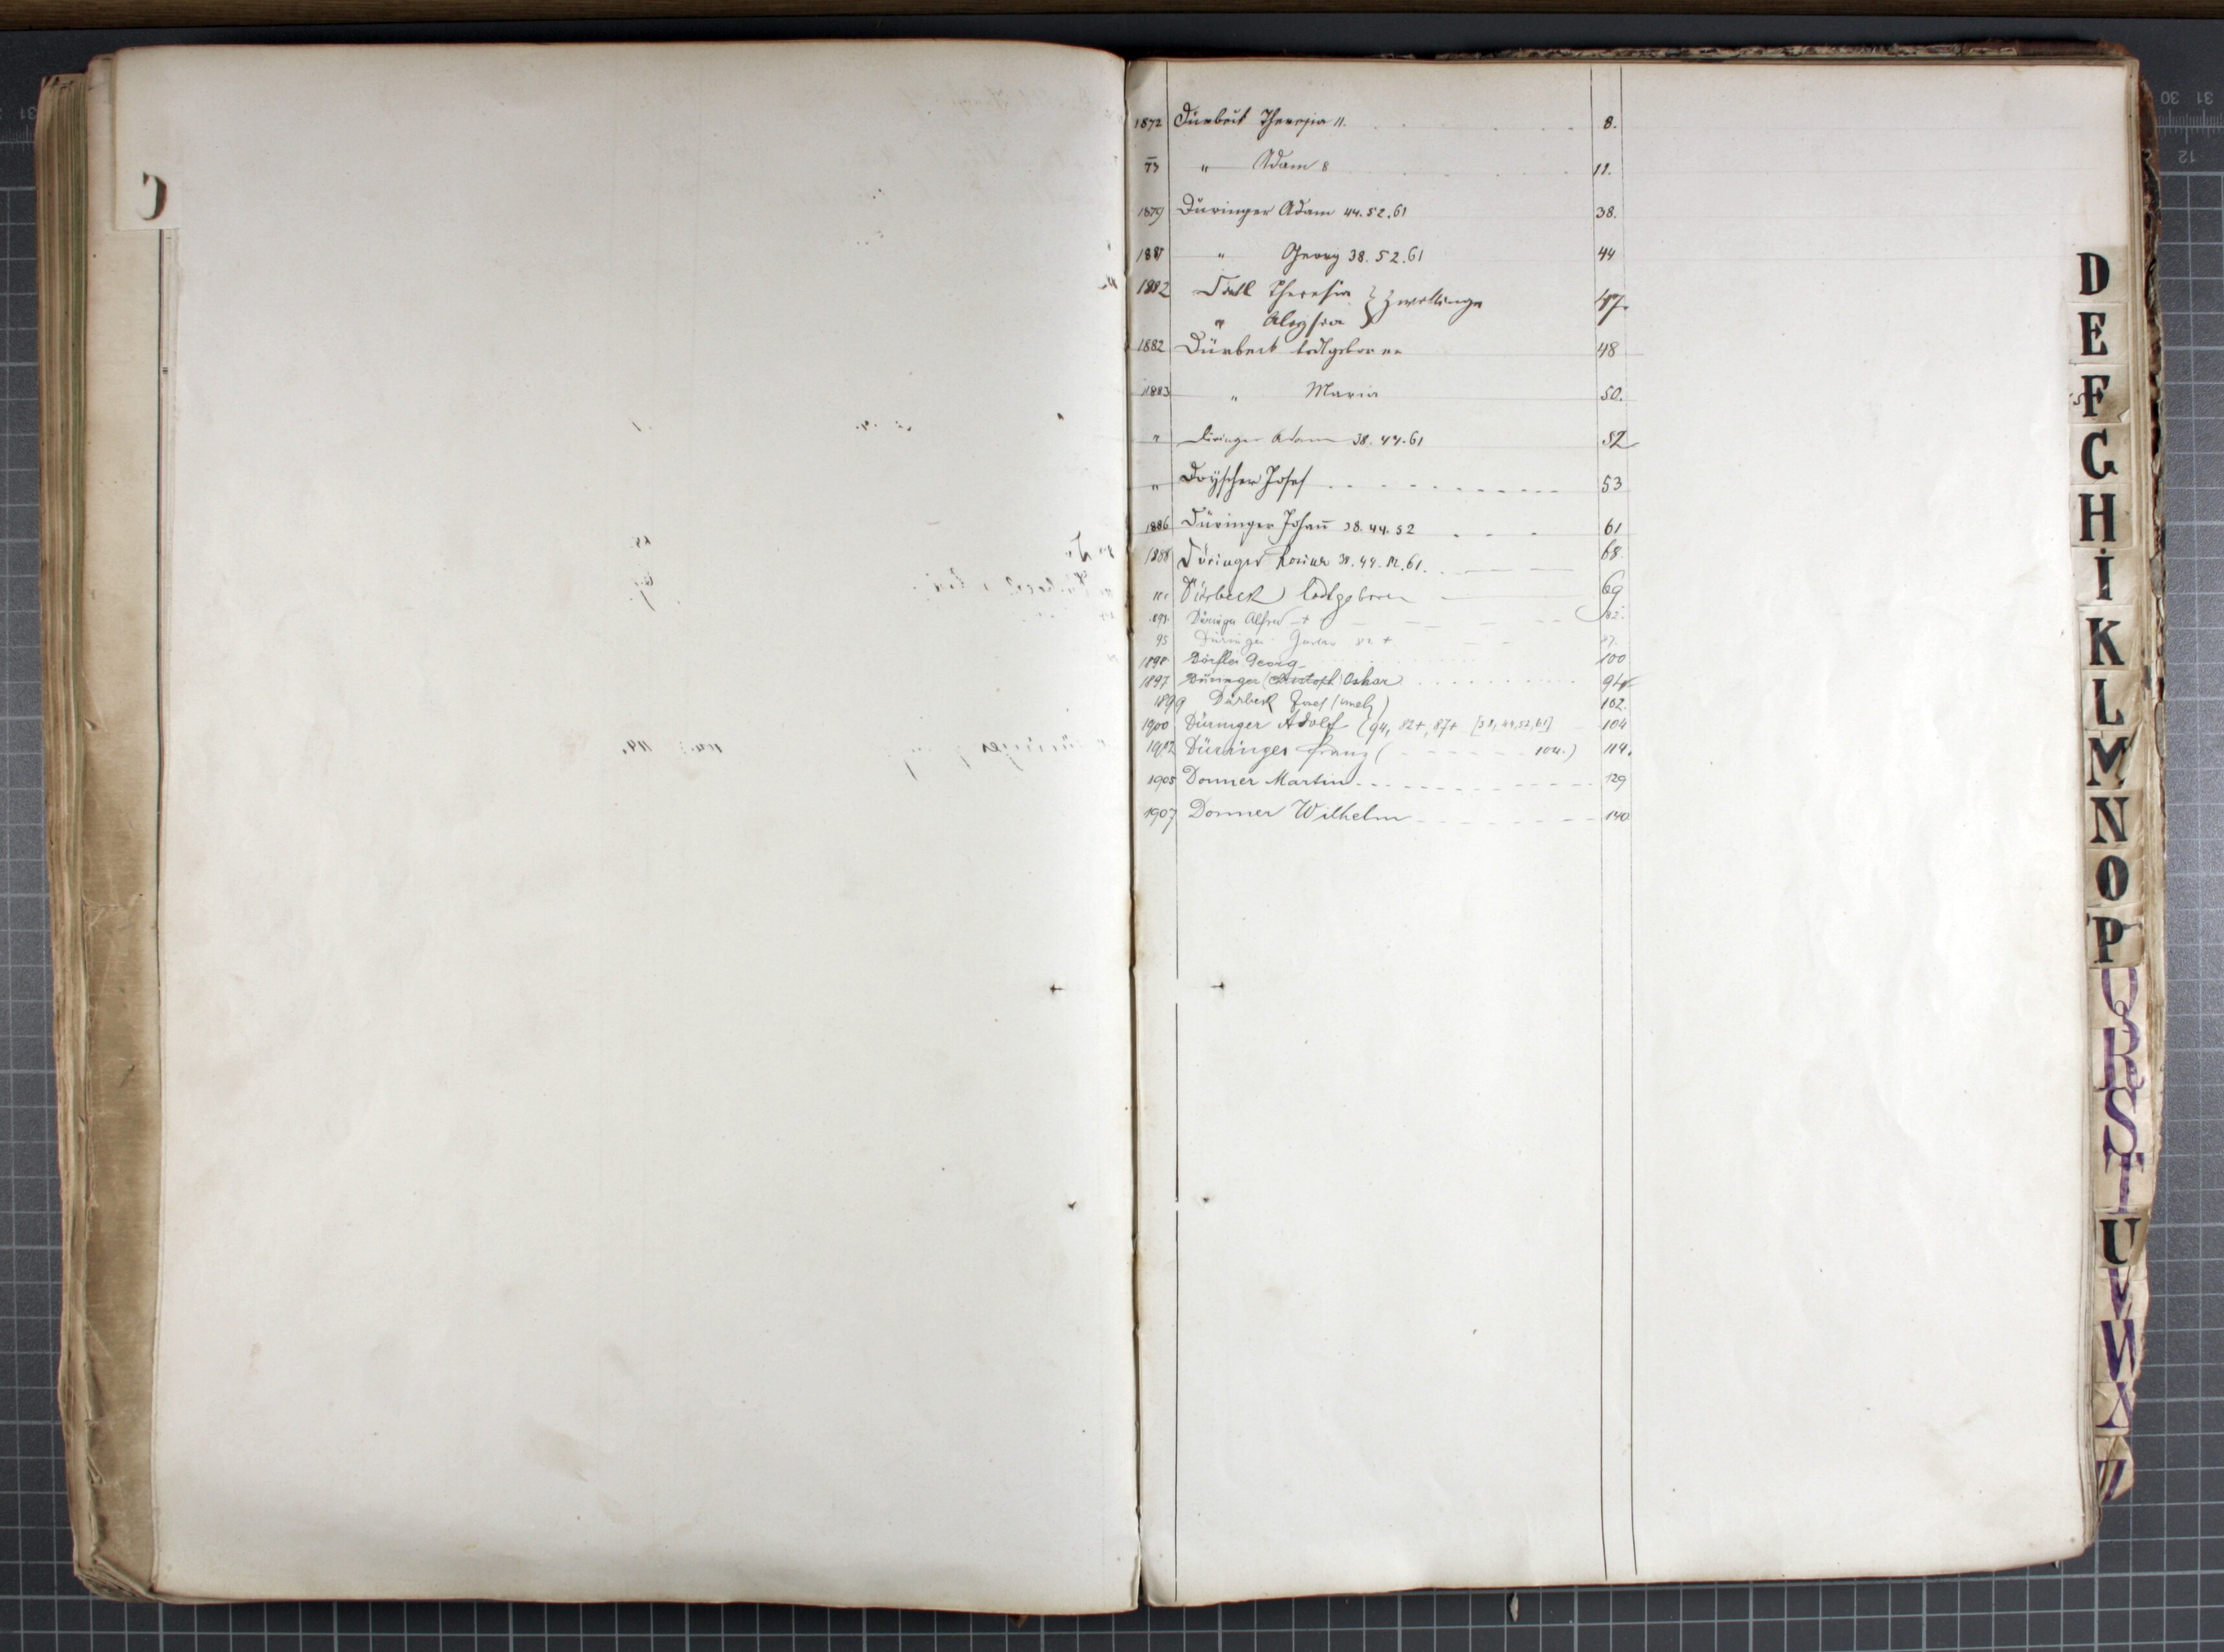 1872 Dürbeck Theresia 11. 8.
73 " Adam 8 11.
1879 Düringer Adam 44.52.61 38.
1881 " Georg 38.52.61 44
1882 Theresia } Zwillinge 47.
" Aloysia
1882 Dürbeck todtgeboren 48
1883 " Maria 50.
" Düringer Adam 38.44.61 52
" Josef 53
1886 Düringer Johañ 38.44.52 61
1888 Düringer 38.44.52.61. 68.
Dürbeck todtgeboren 69
Düringer Alfred + 82.
95 Düringer 82 + 87.
1898 Dörfler Georg 100
1897 Düringer (Christoph) Oskar 94
1899 Dürbeck Josef (unehl) 102.
1900 Düringer Adolf (94, 82+, 87+ [38,44,52,61] 104
1902 Dürringer Franz ( 104.) 114.
1905 Donner Martin 129
1907 Donner Wilhelm 140
D
E
F
G
H
I
K
L
M
N
O
P
Q
R
S
T
U
V
W
Z